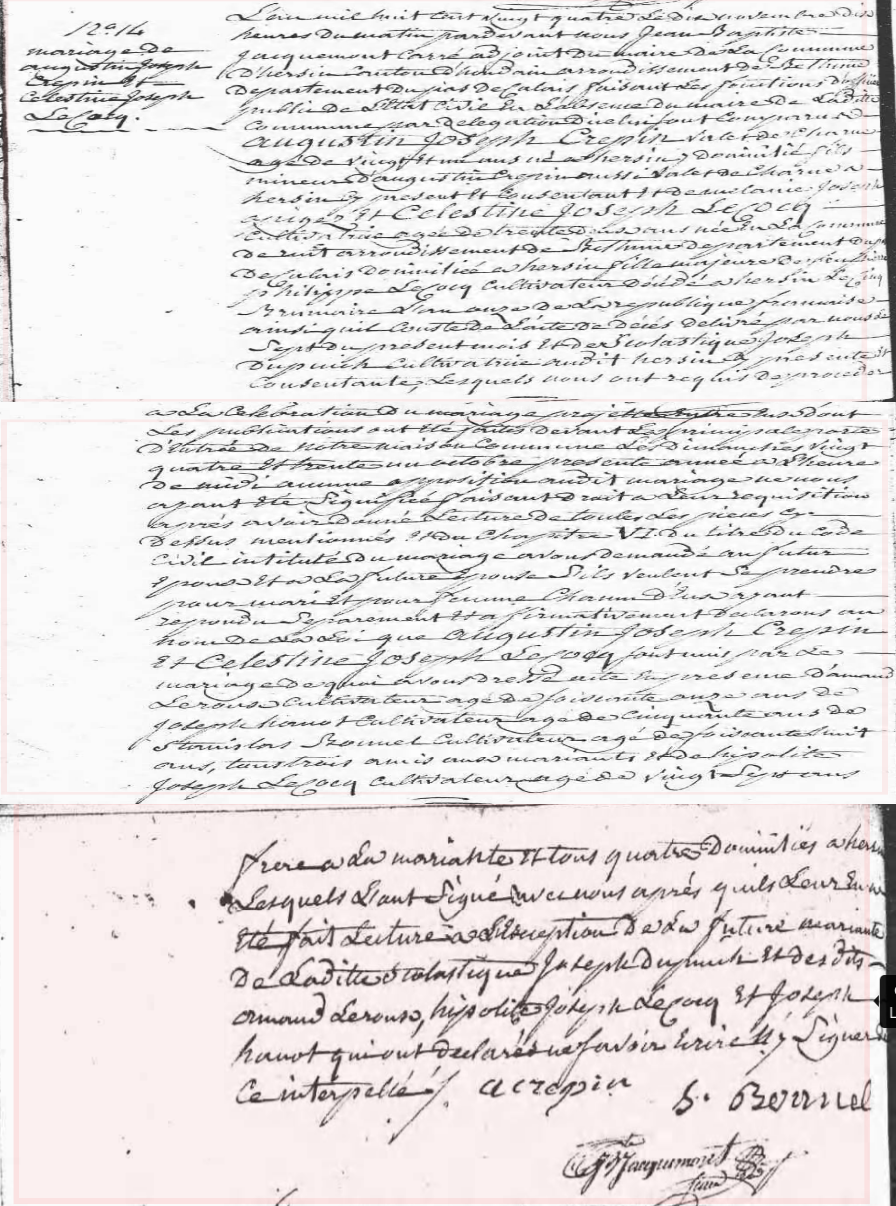 N.º 14
mariage de
augustin Joseph
Crepin Et
Celestine Joseph
LeCocq.
L'an mil huit Cent vingt quatre Le Dix novembre Dix
heures du matin pardevant nous Jean Baptiste
Jacquemont Carré adjoint du maire de La Commune
D'hersin Canton d'houdain arrondissement de Bethune
Departement du pas de Calais faisant Les fonctions
public de L'Etat Civil En L'absence du maire de Laditte
Commune par delegation D'icelui sont Comparus
augustin Joseph Crepin valet de Charue
agé de vingt Et un ans né a hersin y domicilié fils
mineur D'augustin Crepin aussi valet de Charue a
hersin Cy present Et Consentant Et de melanie Joseph
Et Celestine Joseph LeCocq
Cultivatrice agée de trente deux ans née En La Commune
de arrondissement de Bethune departement du pas
De Calais Domiciliée a hersin fille majeure de feu
philippe LeCocq Cultivateur Décédé a hersin Le Cinq
Brumaire L'an onze de La republique francaise
ainsi quil Conste de L'acte de Décés delivré par nous Le
Sept du present mois Et de Scolastique Joseph
Dupuich Cultivatrice audit hersin Cy presente Et
Consentante, Lesquels nous ont requis De proceder
a La Celebration Du mariage projetté Entre Eux Dont
Les publications ont Eté faites devant La principale porte
D'Entrée de notre maison Commune Les Dimanches vingt
quatre Et trente un octobre presente année a L'heure
de midi aucune opposition audit mariage ne nous
ayant Eté Signifiée faisant Droit a Leur requisition
aprés avoir Donné Lecture de toutes Les pieces cy
Dessus mentionnés Et du Chapitre VI du titre du Code
Civil intitulé Du mariage avons demandé au futur
Epoux Et a La future Epouse S'ils veulent Se prendre
pour mari Et pour femme Chacun D'Eux ayant
repondu Séparement Et affirmativement Declarons au
nom de La Loi que augustin Joseph Crepin
Et Celestine Joseph LeCocq sont unis par Le
mariage de quoi avons dressé acte En presence D'amand
Leroux Cultivateur agé de soissante onze ans de
Joseph hanot Cultivateur agé de Cinquante ans de
Stanislas Bonnel Cultivateur agé de soissante huit
ans, tous trois amis aux mariants Et de hipolite
Joseph LeCocq Cultivateur agé de vingt Sept ans
frere a La mariante Et tous quatre Domiciliés a hersin
Lesquels L'ont Signé avec nous aprés quils Leur En a
Eté fait Lecture a L'Exception De La future mariante
De Laditte Scolastique Joseph Dupuich Et des dits
armand Leroux, hipolite Joseph LeCocq Et Joseph
hanot qui ont declarés ne savoir Ecrire Ny Signer de
Ce interpellé /. a crepin
S. Bonnel
Jacquemont